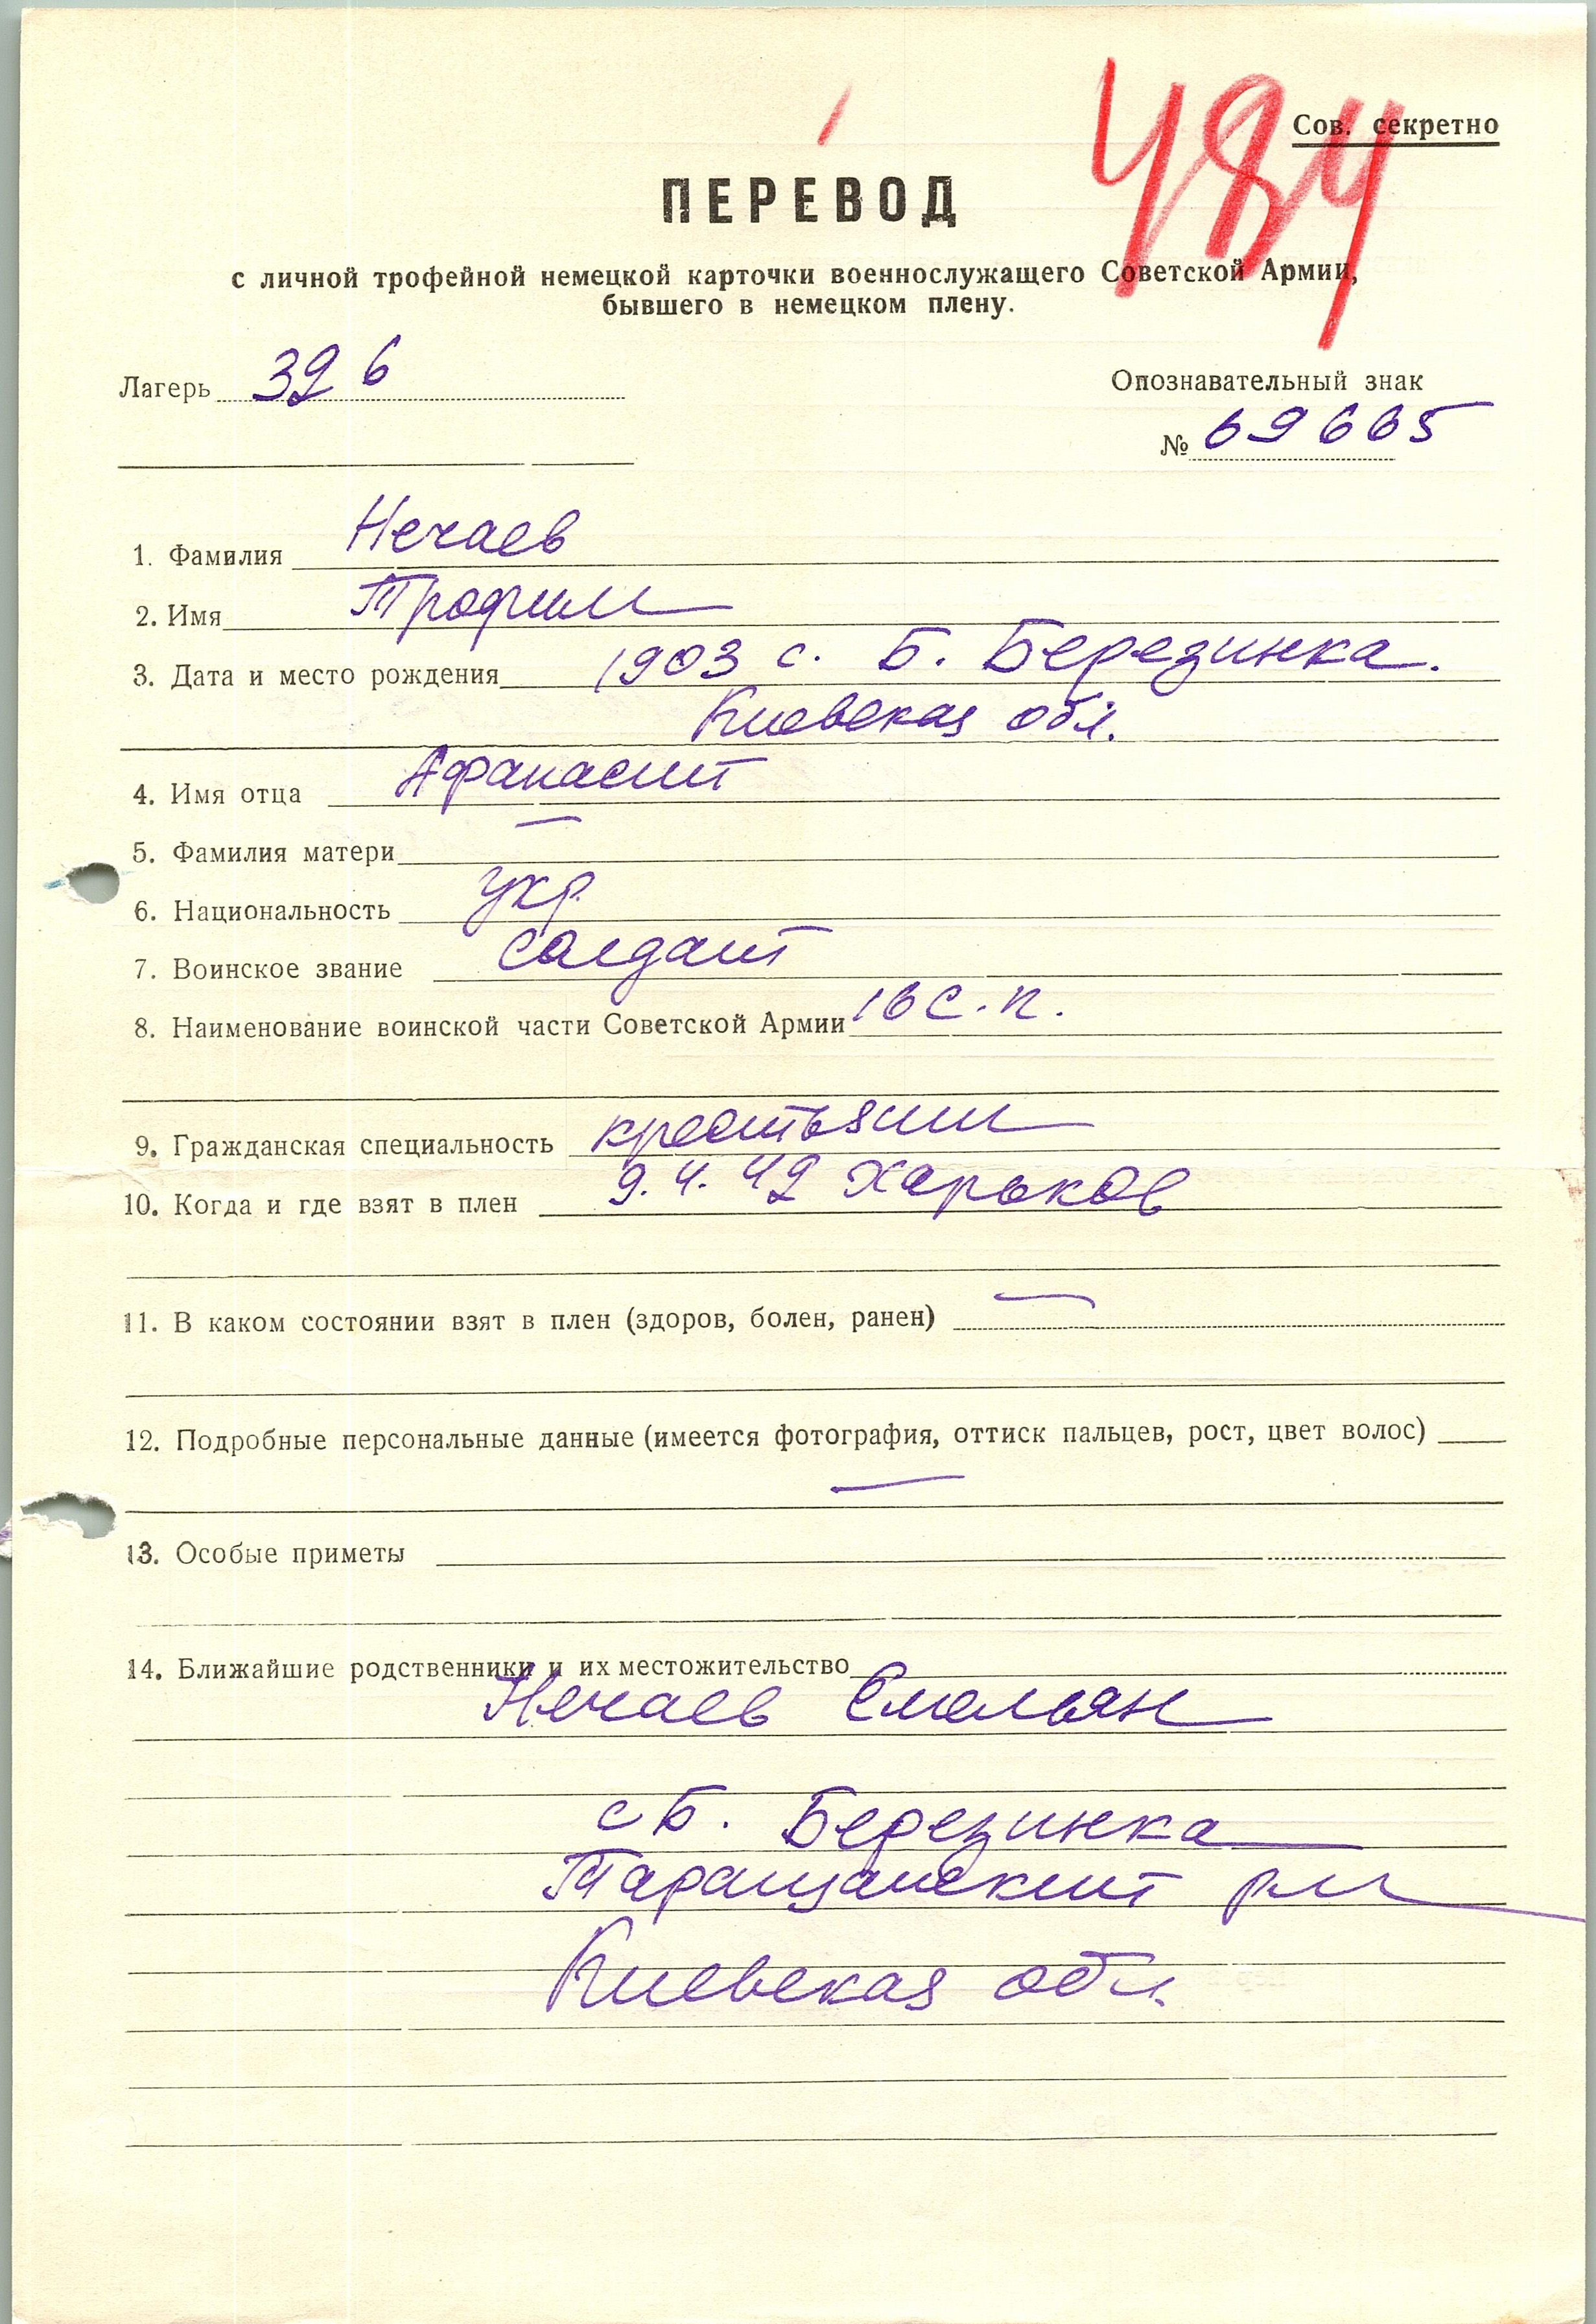 484
Сов. секретно
ПЕРЕВОД
с личной трофейной немецкой карточки военнослужащего Советской Армии,
бывшего в немецком плену.
Лагерь 326
Опознавательный знак
№ 69665
1. Фамилия Нечаев
2. Имя Трофим
3. Дата и место рождения 1903 с. Б. Березинка.
Киевская обл.
4. Имя отца Афанасий
5. Фамилия матери —
6. Национальность укр.
7. Воинское звание солдат
8. Наименование воинской части Советской Армии 16 с.п.
9. Гражданская специальность крестьянин
10. Когда и где взят в плен 9.4.42 Харьков
11. В каком состоянии взят в плен (здоров, болен, ранен) —
12. Подробные персональные данные (имеется фотография, оттиск пальцев, рост, цвет волос)
—
13. Особые приметы
14. Ближайшие родственники и их местожительство
Нечаев Емельян
с Б. Березинка
Таращанский р-н
Киевская обл.